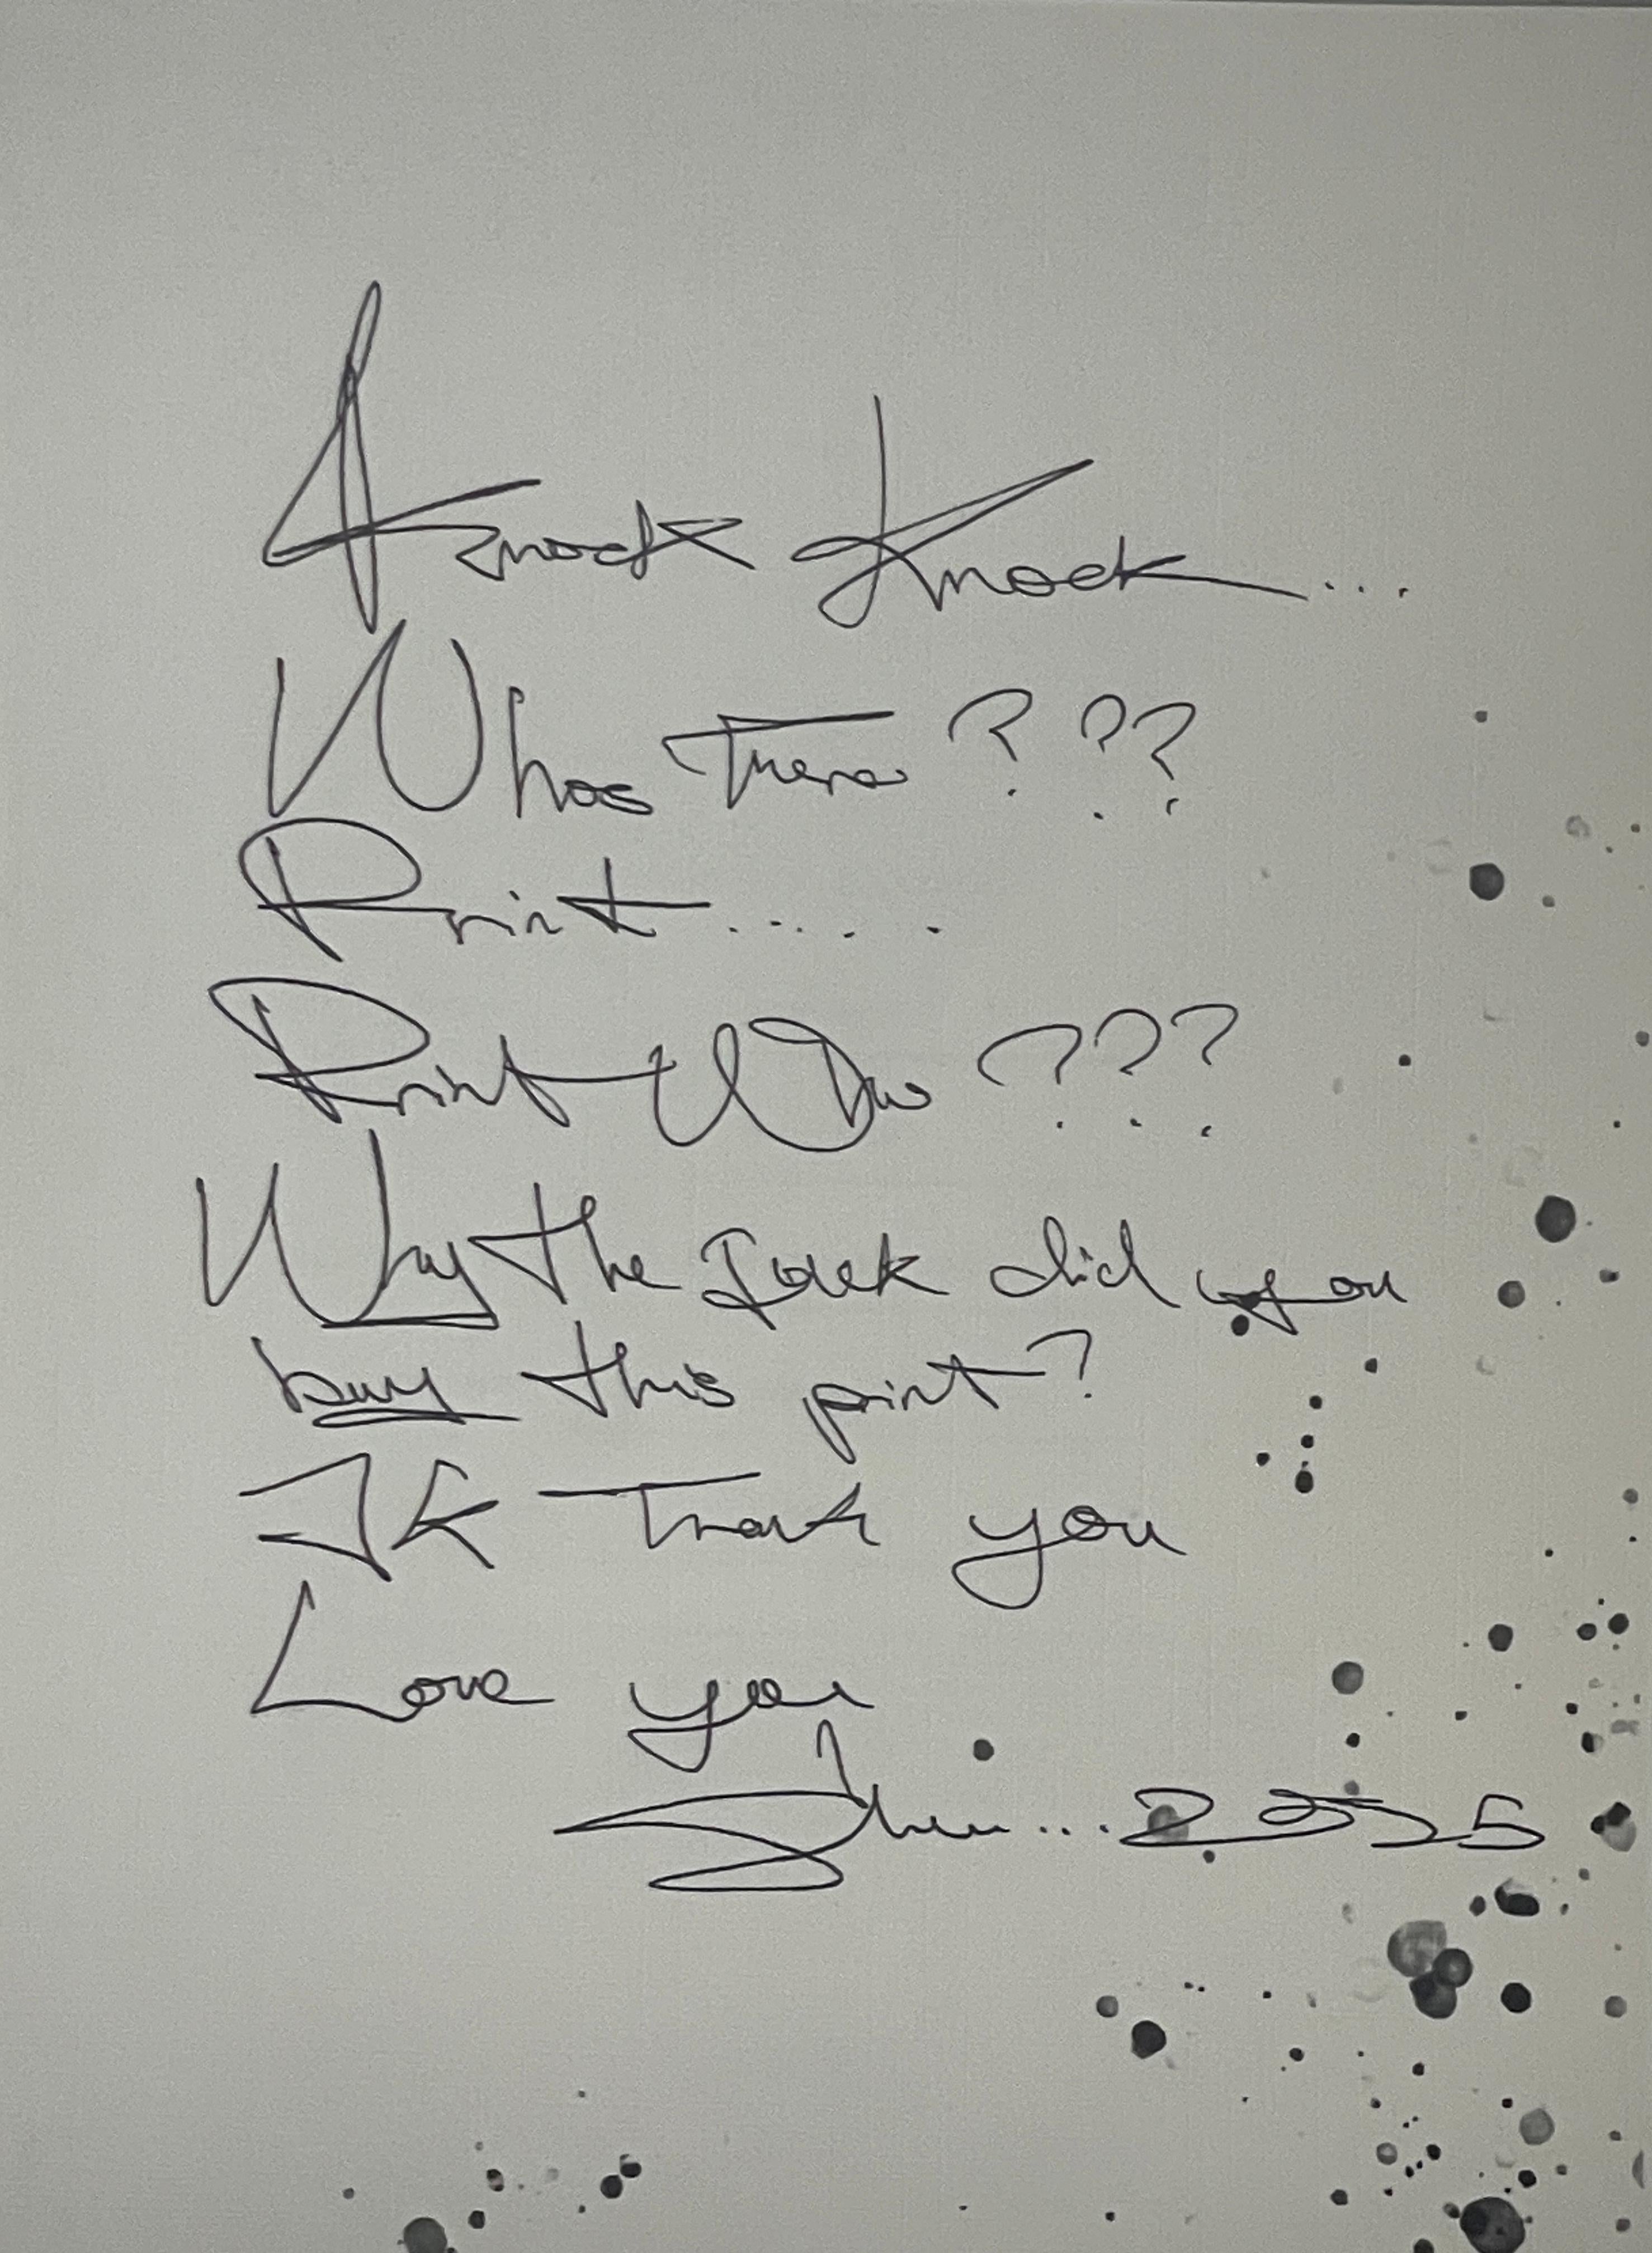 Knock Knock...
Whos There ? ??
Print.....
Print Who ???
Why the Fuck did you
buy this print?
JK Thank you
Love you
...2025